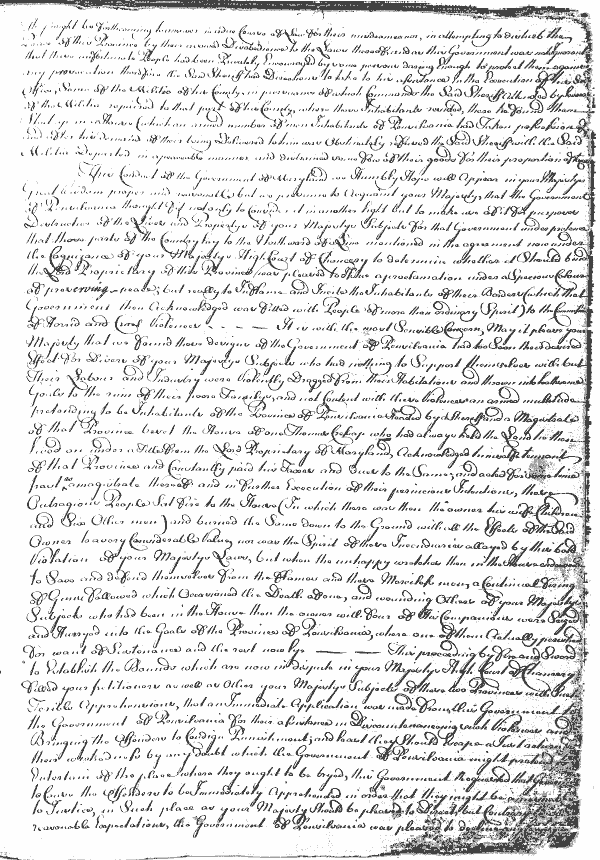 might be forthcoming to answer in due Course of Law for their misdemeanors, in attempting to disturb the
Peace of this Province by their avowed Disobedience to the Laws thereof and as this Government was
that these unfortunate People had been Privately Encouraged by some persons daring Enough to protect them against
any prosecution therefore the said Sheriff had directions to take to his assistance in the Execution of his said
Office, Some of the Militia of the County, in pursuance of which Command the said Sheriff attended by
of the Militia repaired to that part of the County, where those Inhabitants resided, these he found there
Shut up in a House (which an armed number of men Inhabitants of Pensilvania had Taken possession of
and after his demand of their being delivered to him was Obstinately refused the said Sheriff with the said
Militia Departed in a peaceable manner and distrained some few of their goods for their proportion of
This Conduct of the Government of Maryland we Humbly Hope will Appear in your Majestys
Great wisdom proper and reasonable but we presume to Acquaint your Majesty, that the Government
of Pensilvania thought fit not only to Consider it in another light but to make use of it for purposes
Destructive of the Lives and Property of your Majestys Subjects for that Government under pretence
that those parts of the Country lay to the Northward of a Line mentioned in the agreement now under
the Cognizance of your Majestys High Court of Chancery to determine whether it Should bind
the Lord Proprietary of this Province was pleased to Issue a proclamation under a Specious Colour
of preserving peace, but really to Inflame and Incite the Inhabitants of their Borders (which that
Government then Acknowledged was filled with People of more than ordinary Spirit) to the Committing
of Horrid and Cruel Violences - - - - - It is with the most Sensible Concern, May it please your
Majesty that we found these designs of the Government of Pensilvania had too Soon their desired
effect for Divers of your Majestys Subjects who had nothing to Support themselves with but
Their Labour and Industry were Violently Dragged from their Habitations and thrown into
Goals to the ruin of their poor Families, and not Content with these Violences an armed multitude
pretending to be Inhabitants of the Province of Pensilvania headed by a Sheriff and a Magistrate
of that Province beset the House of one Thomas Cresap who had always held the Land he there
lived on under a Title from the Lord Proprietary of Maryland, Acknowledged himself a tenant
of that Province and Constantly paid his Taxes and Dues to the Same; and acted for some time
past as a magistrate thereof and in further Execution of their pernicious Intentions, these
Outragious People Set fire to the House (In which there was then the owner his wife Children
and Six Other men) and burned the Same down to the Ground with all the Effects of the said
Owner to a very Considerable Value; nor was the Spirit of these Incendiaries allayed by this bold
Violation of your Majestys Laws, but when the unhappy wretches then in the House endeavoured
to Save and defend themselves from the flames and these Merciless men, a Continual firing
of Guns followed which Occasioned the Death of one, and wounding Others of your Majestys
Subjects who had been in the House then the owner with four of his Companions were Seized
and Hurryed into the Goals of the Province of Pensilvania, where one of them Actually perished
for want of Sustenance and the rest now lye - - - - - This proceeding by fire and Sword
to Establish the Bounds which are now in dispute in your Majestys High Court of Chancery
filled your petitioners as well as Other your Majestys Subjects of these two Provinces with Such
Terrible Apprehensions, that an Immediate Application was made from this Government to
the Government of Pensilvania for their assistance in Discountenancing such Violences and
Bringing the Offenders to Condign Punishment; and least they Should Escape a Just
their wickedness by any doubt which the Government of Pensilvania might pretend to
Entertain of the place where they ought to be tryed, this Government Requested that Government
to Cause the Offenders to be Immediately Apprehended in order that they might be
to Justice, in Such place as your Majesty Should be pleased to direct, but Contrary to all
reasonable Expectations, the Government of Pensilvania was pleased to decline